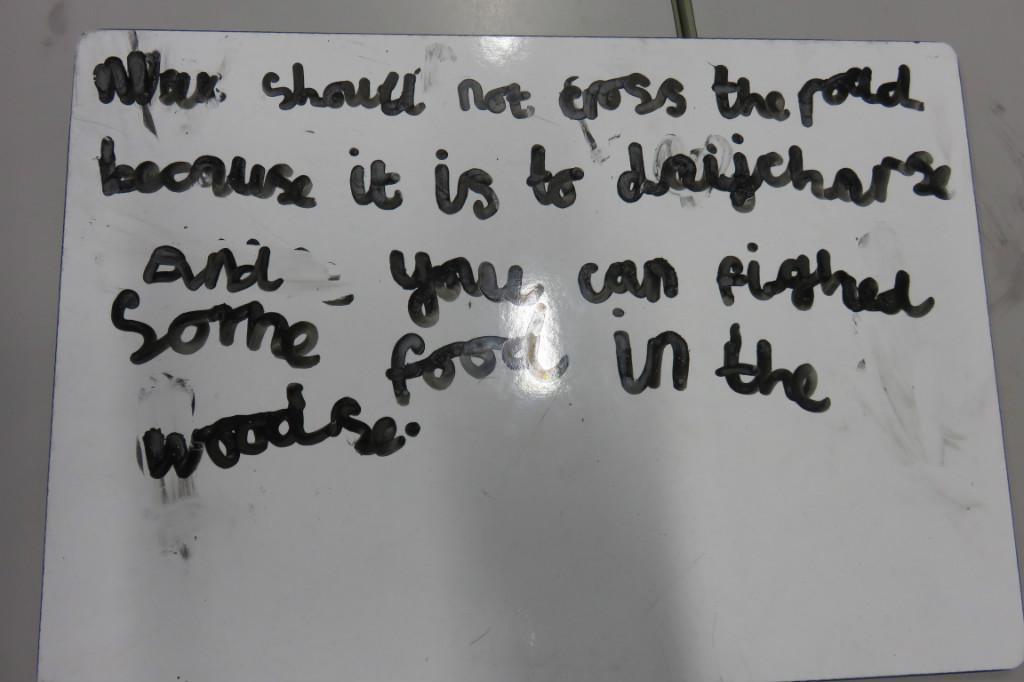 You should not cross the road
because it is to daijcharse
and you can fighed
Some food in the
woodse.